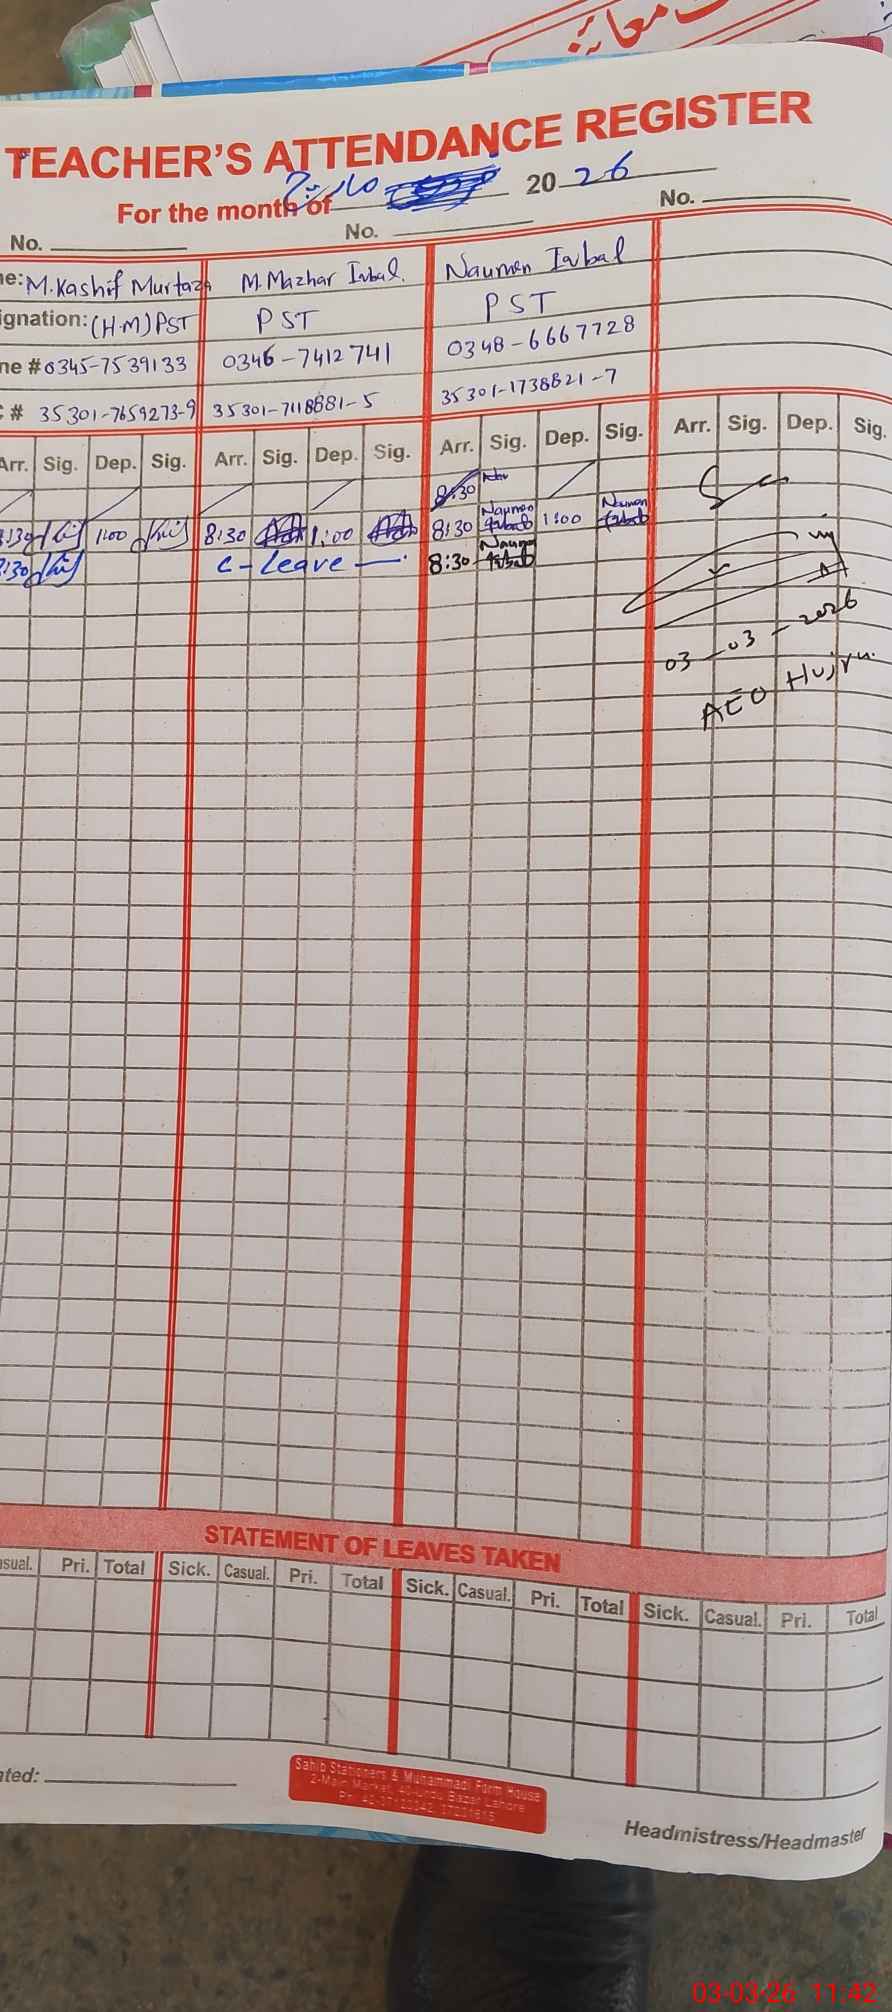 معائنہ
TEACHER'S ATTENDANCE REGISTER
For the month of مارچ 2026
No. No. No.
me: M. Kashif Murtaza M. Mazhar Iqbal. Nauman Iqbal
ignation: (H.M) PST PST PST
ne # 0345-7539133 0346-7412741 0348-6667728
C # 35301-7659273-9 35301-7118881-5 35301-1738821-7
Arr. Sig. Dep. Sig. Arr. Sig. Dep. Sig. Arr. Sig. Dep. Sig. Arr. Sig. Dep. Sig.
8:30
8:30 1:00 8:30 1:00 8:30 Nauman Iqbal 1:00 Nauman Iqbal
8:30 C-Leave 8:30 Nauman Iqbal
03-03-2026
AEO Hujra.
STATEMENT OF LEAVES TAKEN
asual. Pri. Total Sick. Casual. Pri. Total Sick. Casual. Pri. Total Sick. Casual. Pri. Total
ated:
Sahib Stationers & Muhammadi Form House
2-Main Market, Urdu Bazar Lahore
Headmistress/Headmaster
03-03-26 11:42